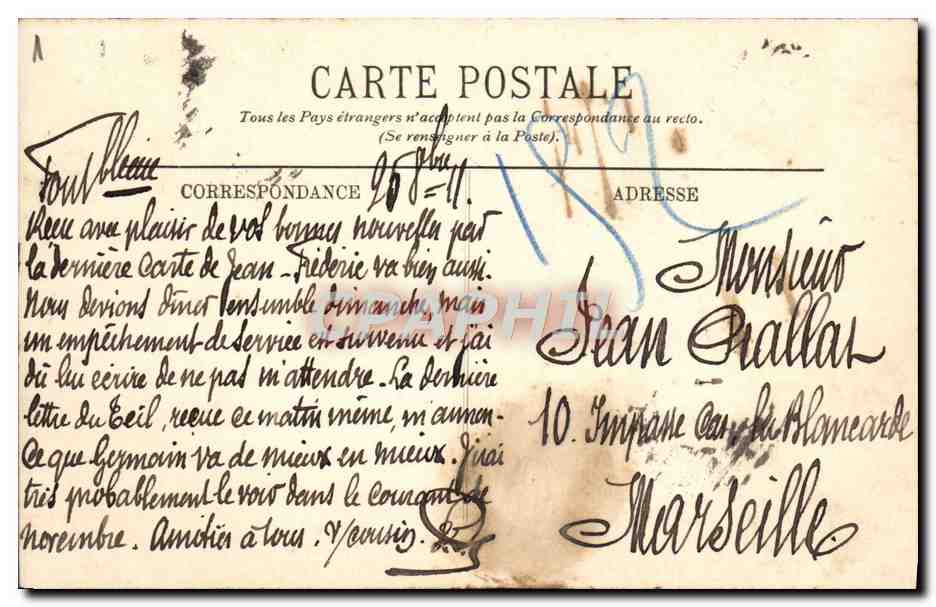 CARTE POSTALE
Tous les Pays étrangers n'acceptent pas la Correspondance au recto.
(Se renseigner à la Poste).
CORRESPONDANCE
ADRESSE
Font bleau
26 8bre 11.
Reçu avec plaisir de vos bonnes nouvelles par
la dernière carte de Jean - Fréderic va bien aussi.
Nous devions dîner ensemble dimanche, mais
un empêchement de service est survenu et j'ai
dû lui écrire de ne pas m'attendre. La dernière
lettre du Teil, reçue ce matin même, m'annon-
ce que Germain va de mieux en mieux. J'irai
très probablement le voir dans le courant de
novembre. Amitiés à tous. V/cousin.
Monsieur
Jean Rallat
10. Impasse Cas, la Blancarde
Marseille.
CPAPHIL